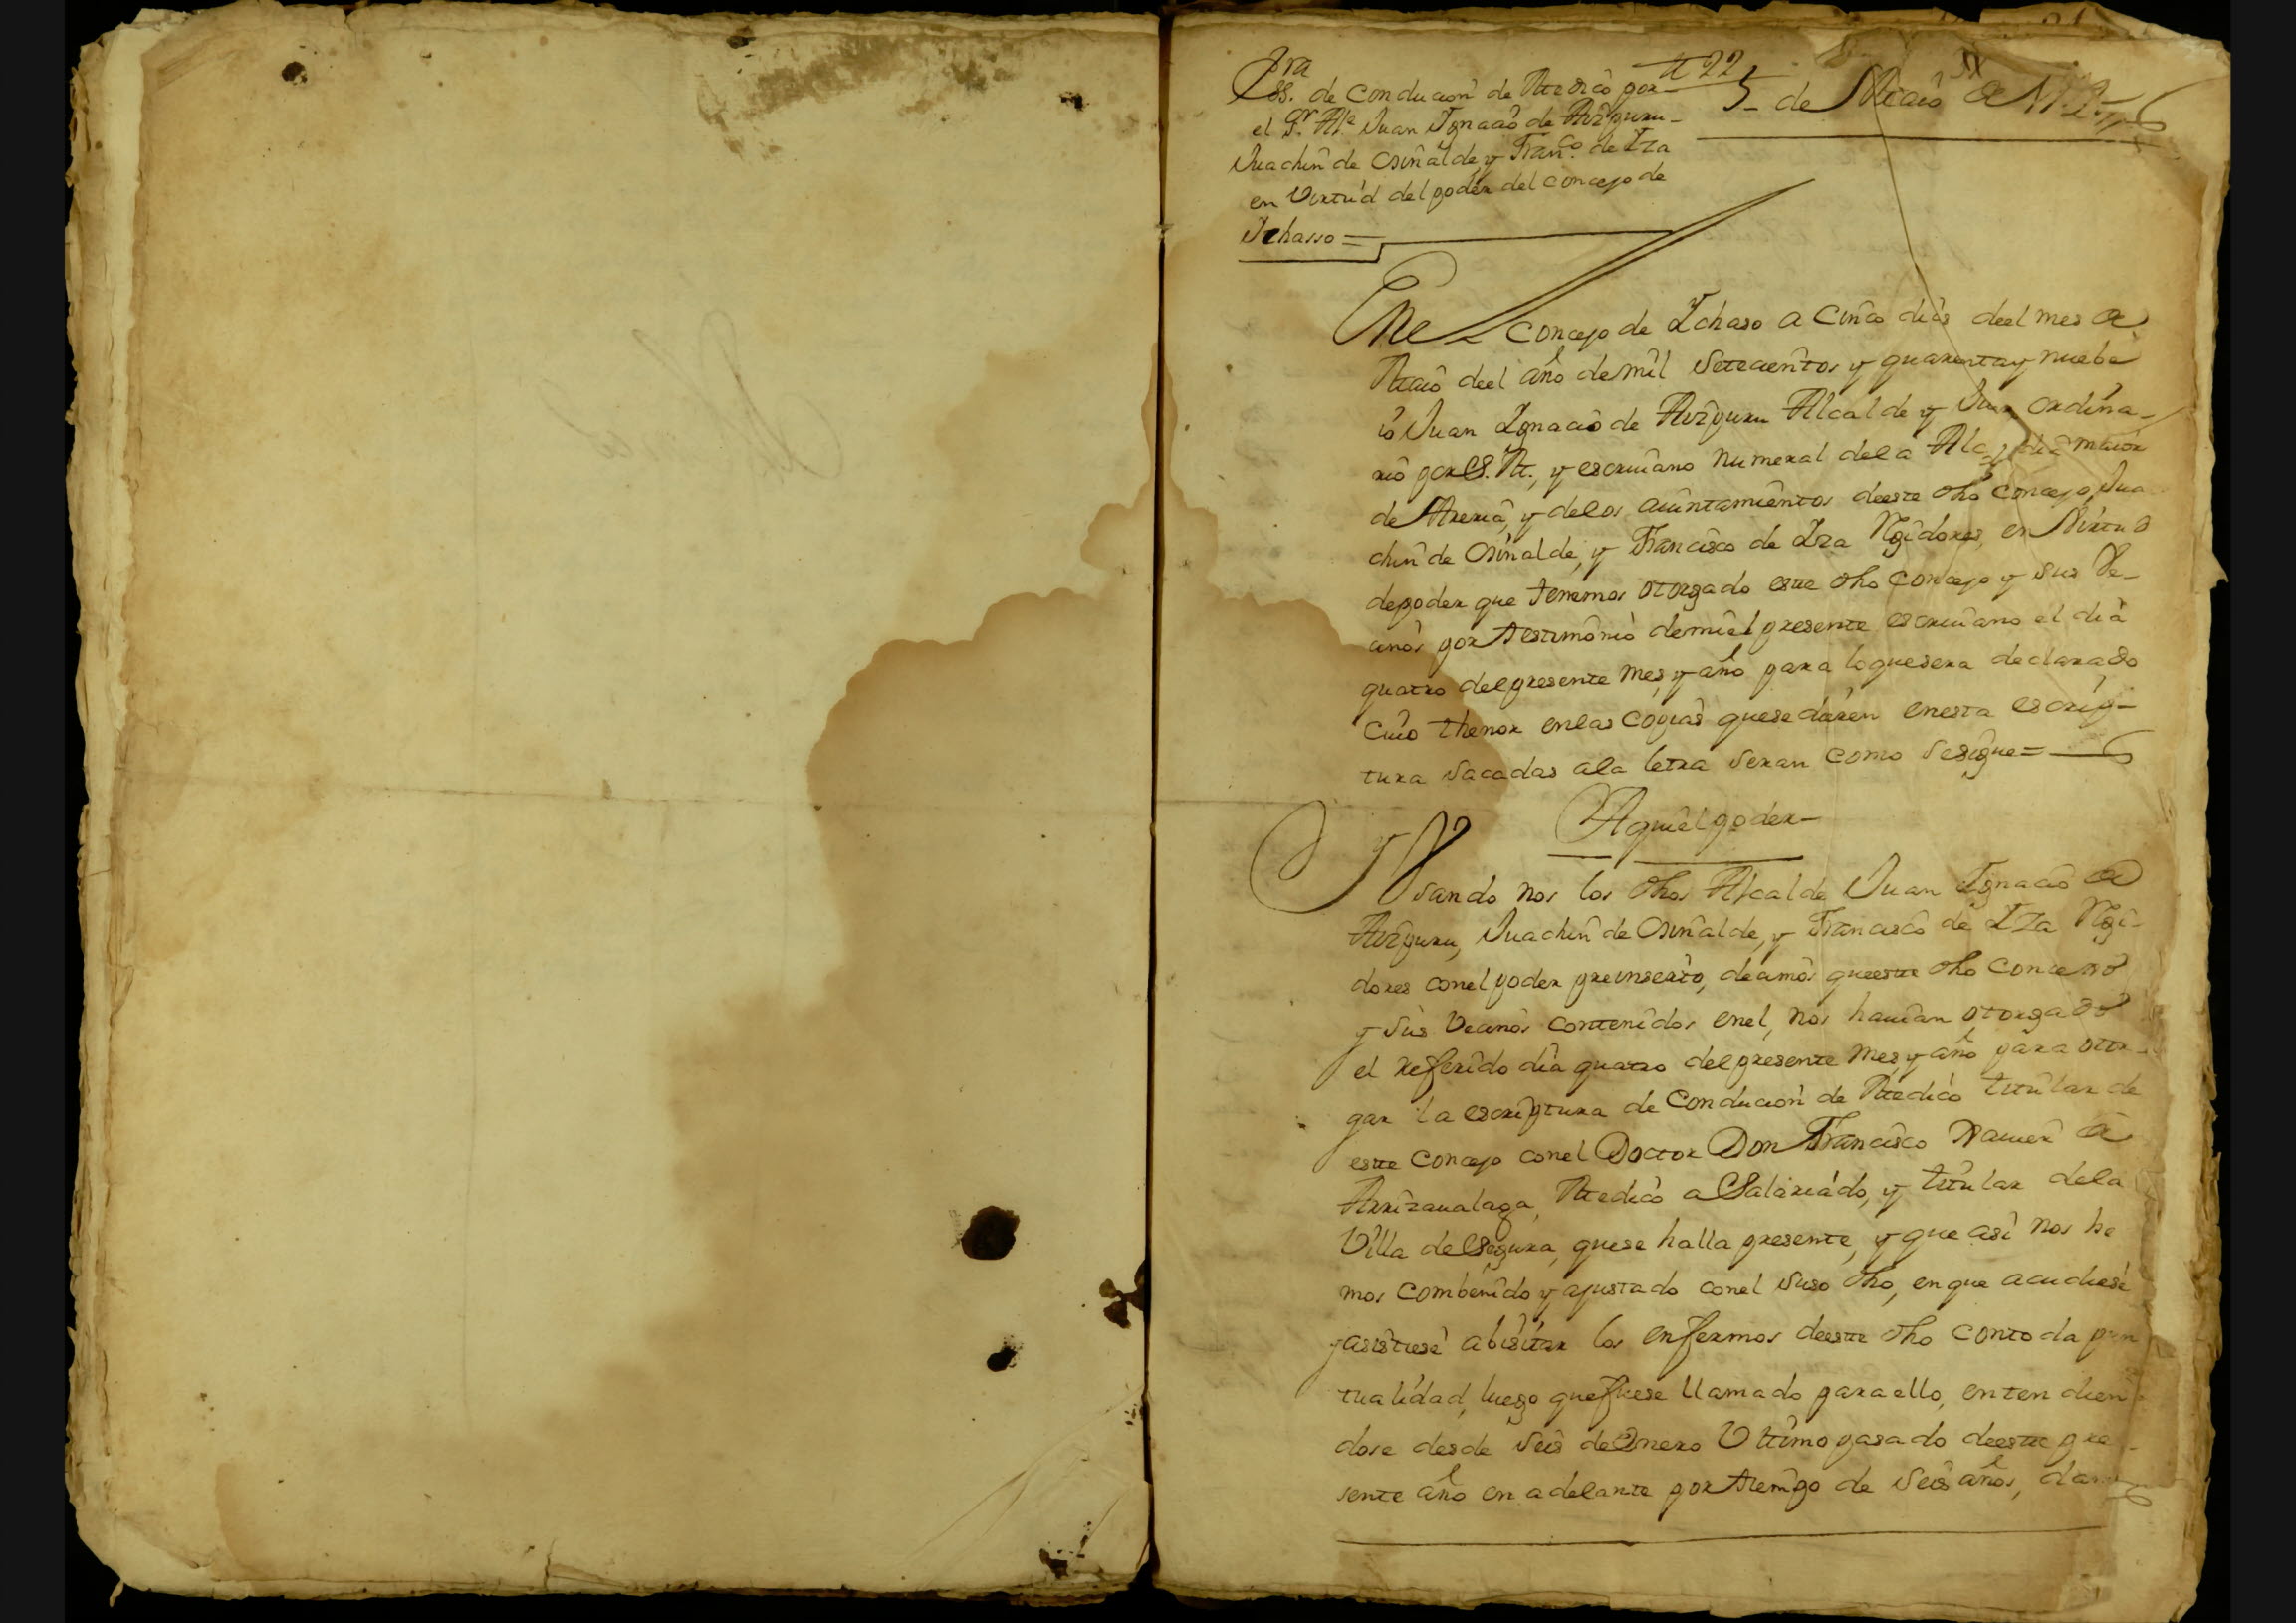 Ess.ra de conducion de Medico por
el S.r Al.e Juan Ignacio de Aizpuru
Juachin de Osinalde, y Fran.co de Iza
en Virtud del poder del concejo de
Ichasso =
N 22
5 de Maio de
Enel Concejo de Ichaso a Cinco dias deel mes de
Maio deel año de mil Setecientos y quarenta y nuebe
io Juan Ignacio de Aizpuru Alcalde y Juez ordina-
rio por S. M., y escriuano numeral dela Alcaldia maior
de Areria, y delos aiuntamientos deeste dho Concejo, Jua
chin de Osinalde, y Francisco de Iza Rejidores, en Virtud
depoder que tenemos otorgado este dho Concejo y sus Ve-
cinos por testimonio demi el presente escriuano el dia
quatro delpresente mes, y año para loquesera declarado
Cuio thenor enlas Copias quese dieren enesta escrip-
tura sacadas ala letra seran como sesigue =
Aqui el poder
Y Vsando nos los dhos Alcalde Juan Ignacio de
Aizpuru, Juachin de Osinalde, y Francisco de Iza Reji-
dores conel poder preinserto, decimos queeste dho Concejo
y sus Vecinos contenidos enel, nos hauian otorgado
el referido dia quatro delpresente mes, y año para otor-
gar la escriptura de Conducion de Medico titular de
este Concejo conel Doctor Don Francisco Xauier de
Arrizaualaga, Medico aSalariado, y titular dela
Villa deSegura, quese halla presente, y que asi nos he
mos combenido y ajustado conel suso dho, en que acudiese
y asistiese abisitar los enfermos deeste dho contoda pun
tualidad, luego quefuese llamado paraello, entendien
dose desde seis deEnero Ultimo pasado deeste pre-
sente año en adelante por tiempo de seis años,